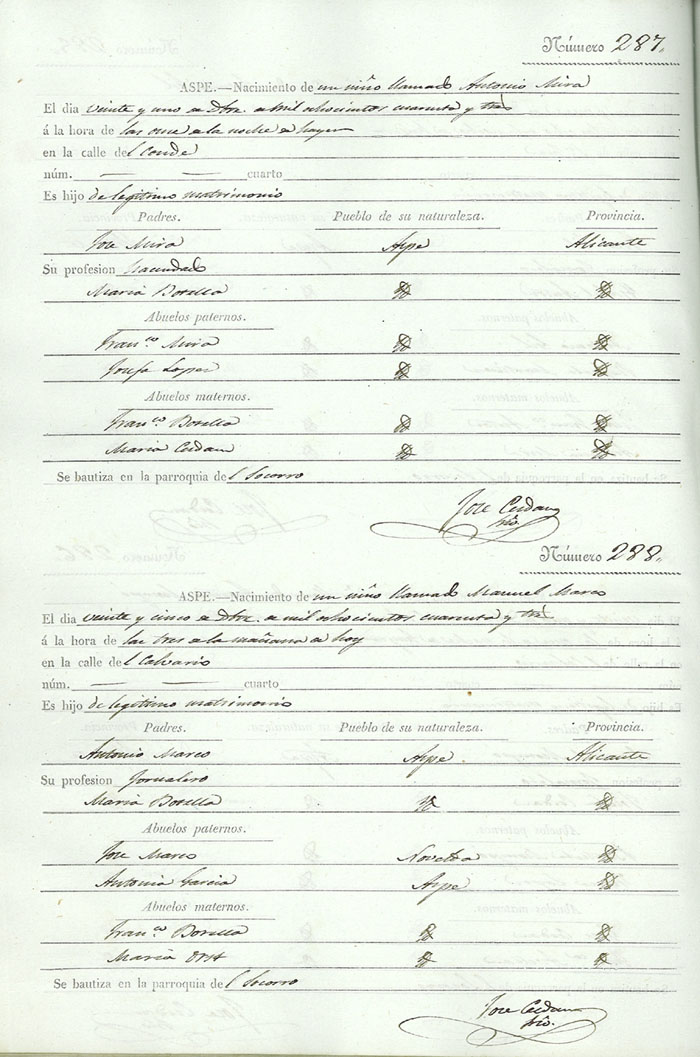 Número 287.
ASPE.—Nacimiento de un niño llamado Antonio Mira
El dia veinte y uno de Dbre. de mil ochocientos cuarenta y tres
á la hora de las once de la noche de hayer
en la calle del Conde
núm. — — cuarto
Es hijo de legitimo matrimonio
Padres. Pueblo de su naturaleza. Provincia.
Jose Mira Aspe Alicante
Su profesion Hacendado
Maria Botella
Abuelos paternos.
Fran.co Mira
Josefa Lopez
Abuelos maternos.
Fran.co Botella
Maria Cerdan
Se bautiza en la parroquia del Socorro
Jose Cerdan
Srio.
Número 288.
ASPE.—Nacimiento de un niño llamado Manuel Marco
El dia veinte y cinco de Dbre. de mil ochocientos cuarenta y tres
á la hora de las tres de la mañana de hoy
en la calle del Calvario
núm. — — cuarto
Es hijo de legitimo matrimonio
Padres. Pueblo de su naturaleza. Provincia.
Antonio Marco Aspe Alicante
Su profesion Jornalero
Maria Botella
Abuelos paternos.
Jose Marco Novelda
Antonia Garcia Aspe
Abuelos maternos.
Fran.co Botella
Maria
Se bautiza en la parroquia del Socorro
Jose Cerdan
Srio.